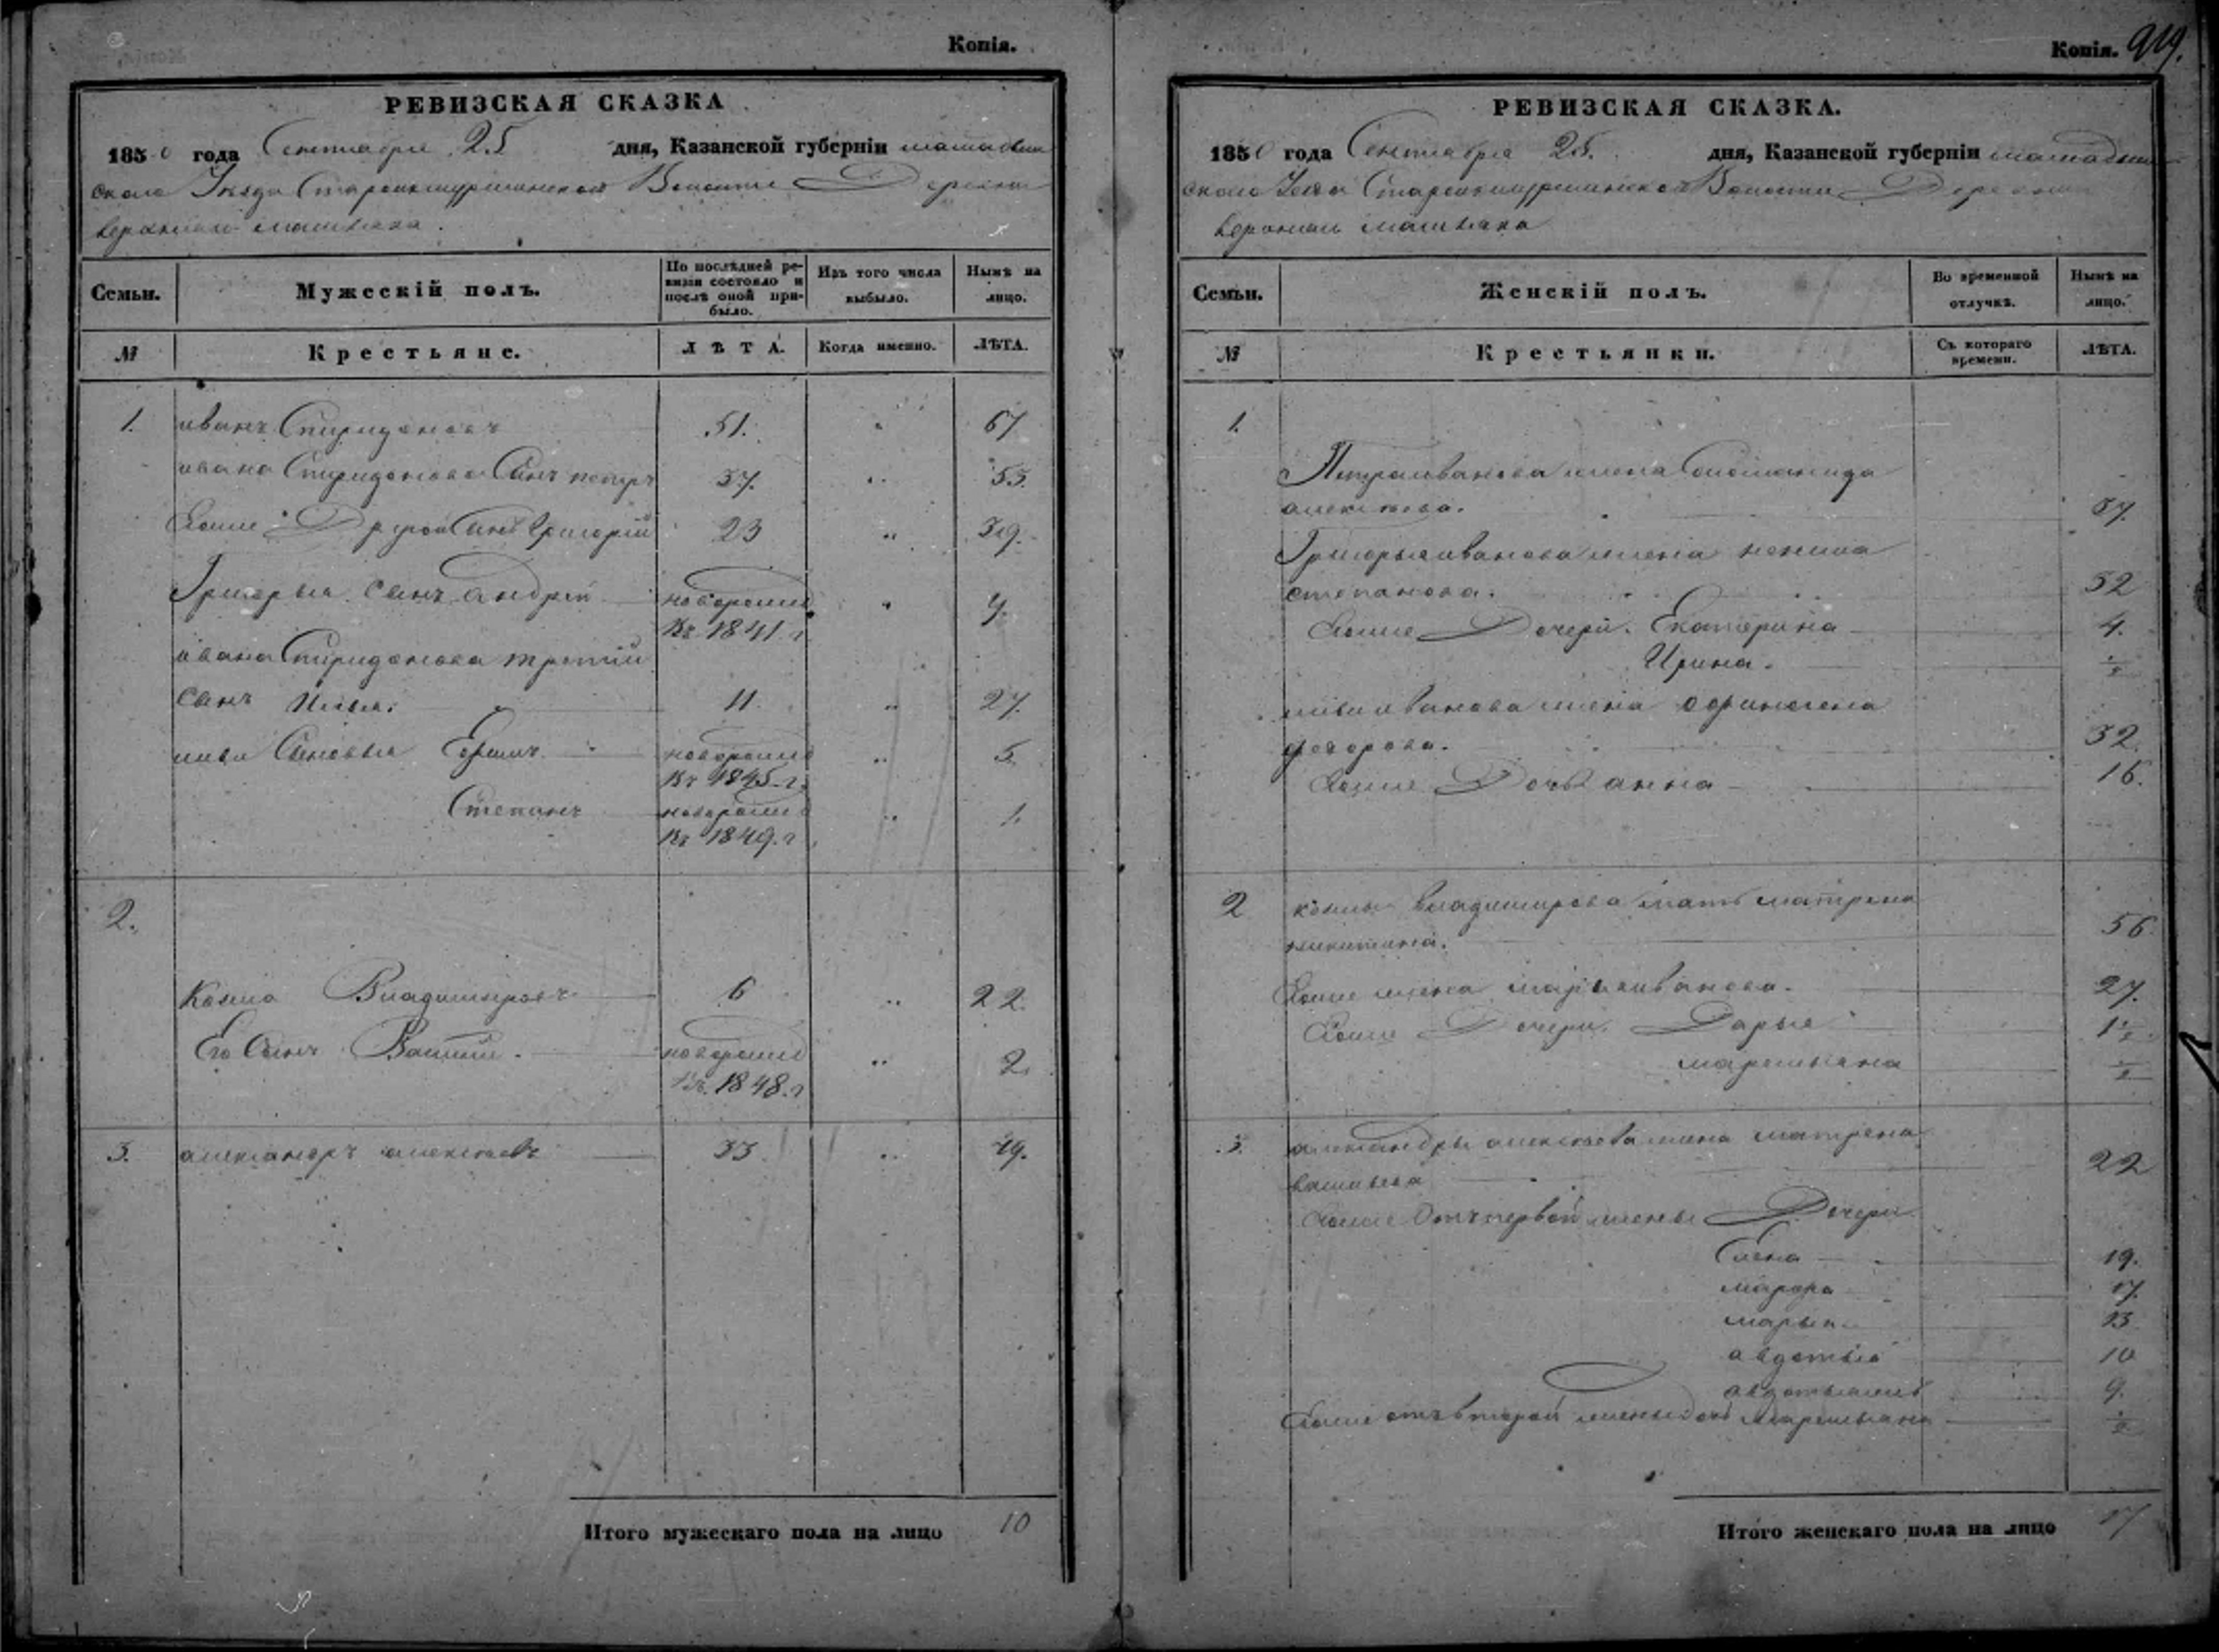 Копія.
РЕВИЗСКАЯ СКАЗКА
1850 года Сентября 25 дня, Казанской губерніи мамадыш
скаго Уѣзда Волости Деревни
верхней
Семьи.
Мужескій полъ.
По послѣдней ре-
визіи состояло и
послѣ оной при-
было.
Изъ того числа
выбыло.
Нынѣ на
лицо.
№
Крестьяне.
ЛѢТА.
Когда именно.
ЛѢТА.
1. иванъ Спиридоновъ 51. " 67
ивана Спиридонова Сынъ петръ 37. " 53.
Ево же Другой Сынъ Григорій 23 " 39.
Григорья Сынъ андрей новорожд " 9.
въ 1841 г
ивана Спиридонова третій
Сынъ Илья. 11. " 27.
ильи Сыновья Ефимъ новорожд " 5.
въ 1845 г.
Степанъ новорожд " 1.
въ 1849. г.
2.
Козма Владимировъ 6 " 22.
Его Сынъ Василій новорожд " 2.
въ 1848. г
3. александръ алексѣевъ 33 " 49.
Итого мужескаго пола на лицо 10
Копія. 919.
РЕВИЗСКАЯ СКАЗКА.
1850 года Сентября 25. дня, Казанской губерніи мамадыш
скаго Уезда Волости Деревни
верхней
Семьи.
Женскій полъ.
Во временной
отлучкѣ.
Нынѣ на
лицо.
№
Крестьянки.
Съ котораго
времени.
ЛѢТА.
1.
Петра иванова жена Соломанида
алексѣева. 57.
Григорья иванова жена
степанова. 32
Ево же Дочери. Екатерина 4.
Ирина. ½
ильи иванова жена
федорова. 32.
Ево же Дочь анна 16.
2 козмы владимирова мать матрена
никитина. 56.
Ево же жена марья иванова. 27.
Ево же Дочери. Дарья 1½
маремьяна ½
3. александры алексѣева жена матрена
васильева 22
Ево же Отъ первой жены Дочери
Елена 19.
марфа 17.
марья 13
авдотья 10
9.
Ево же отъ второй жены дочь маремьяна ½
Итого женскаго пола на лицо 17